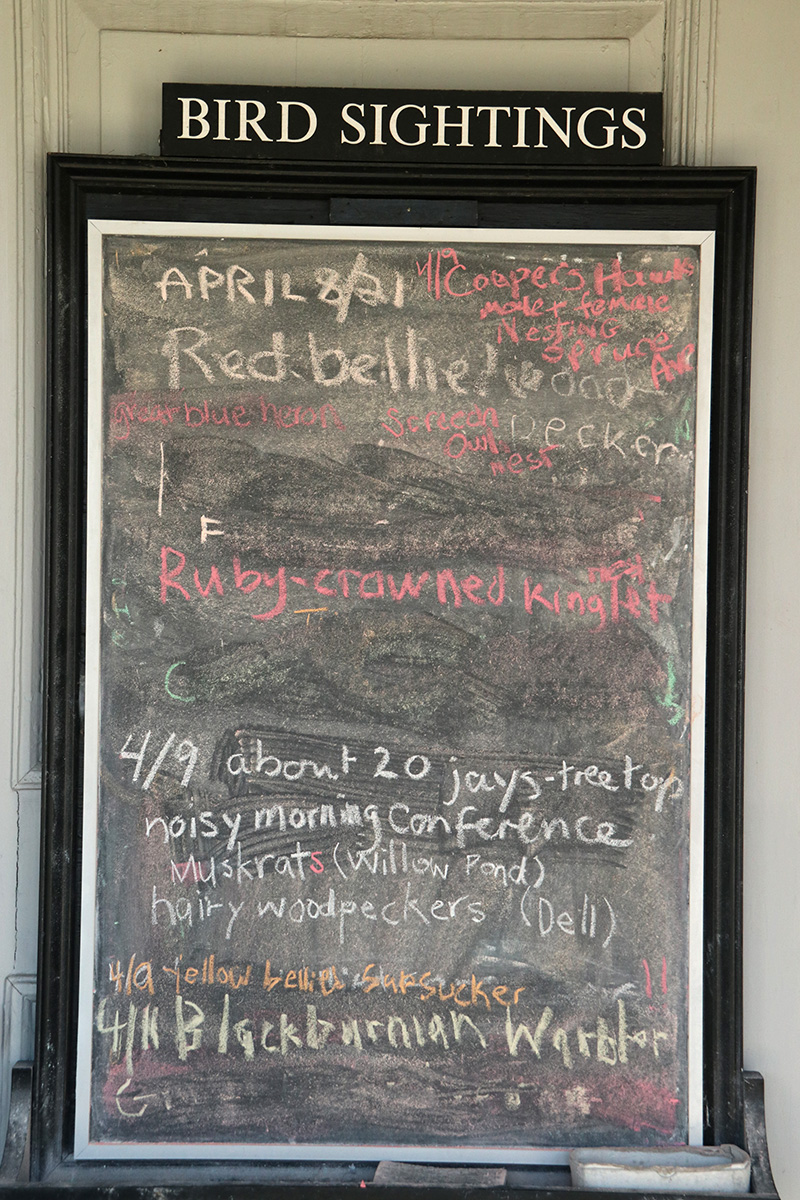 BIRD SIGHTINGS
APRIL 8/21
4/9 Coopers Hawks
male + female
Nesting
Spruce Ave
Red bellied wood
pecker
great blue heron
Screech
Owl
nest
F
Ruby-crowned kinglet
C
4/9 about 20 jays-treetop
noisy morning Conference
Muskrats (Willow Pond)
hairy woodpeckers (Dell)
4/9 Yellow bellied Sapsucker
!!
4/11 Blackburnian Warbler
G